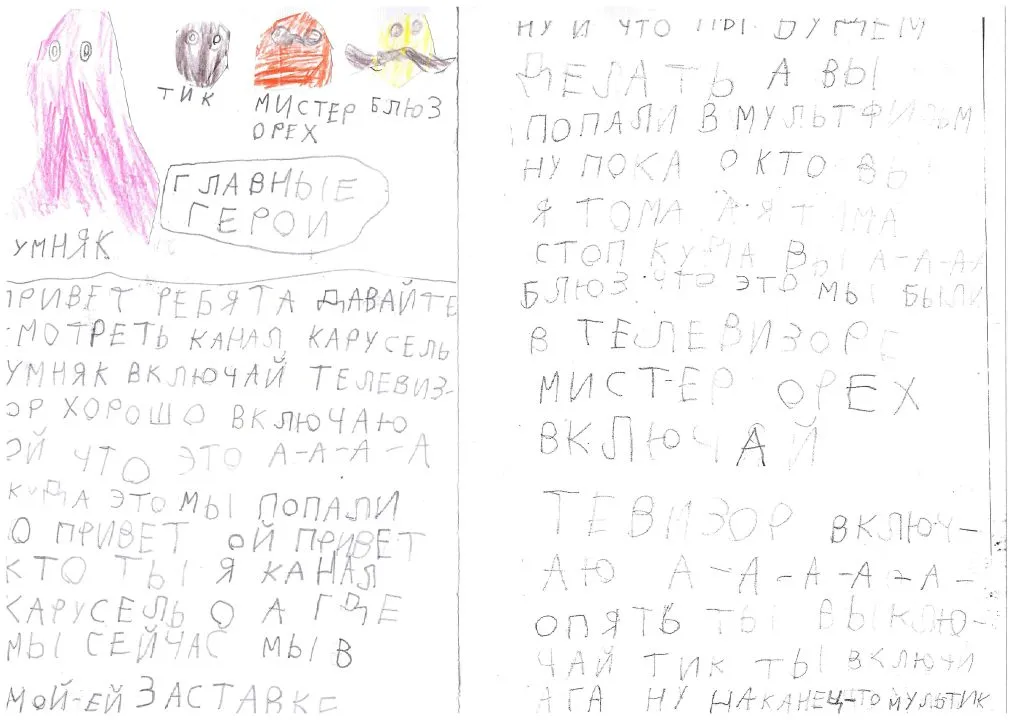 ТИК
МИСТЕР БЛЮЗ
ОРЕХ
ГЛАВНЫЕ
ГЕРОИ
УМНЯК
ПРИВЕТ РЕБЯТА ДАВАЙТЕ
СМОТРЕТЬ КАНАЛ КАРУСЕЛЬ
УМНЯК ВКЛЮЧАЙ ТЕЛЕВИЗ-
ОР ХОРОШО ВКЛЮЧАЮ
ОЙ ЧТО ЭТО А-А-А-А
КУДА ЭТО МЫ ПОПАЛИ
О ПРИВЕТ ОЙ ПРИВЕТ
КТО ТЫ Я КАНАЛ
КАРУСЕЛЬ О А ГДЕ
МЫ СЕЙЧАС МЫ В
МОЙ-ЕЙ ЗАСТАВКЕ
НУ И ЧТО МЫ БУДЕМ
ДЕЛАТЬ А ВЫ
ПОПАЛИ В МУЛЬТФИЗЬМ
НУ ПОКА О КТО ВЫ
Я ТОМА А Я ТИМА
СТОП КУДА ВЫ А-А-А
БЛЮЗ ЧТО ЭТО МЫ БЫЛИ
В ТЕЛЕВИЗОРЕ
МИСТ-ЕР ОРЕХ
ВКЛЮЧАЙ
ТЕВИЗОР ВКЛЮЧ-
АЮ А-А-А-А-А-
ОПЯТЬ ТЫ ВЫКЛЮ-
ЧАЙ ТИК ТЫ ВКЛЮЧИ
АГА НУ НАКАНЕЦ-ТО МУЛЬТИК